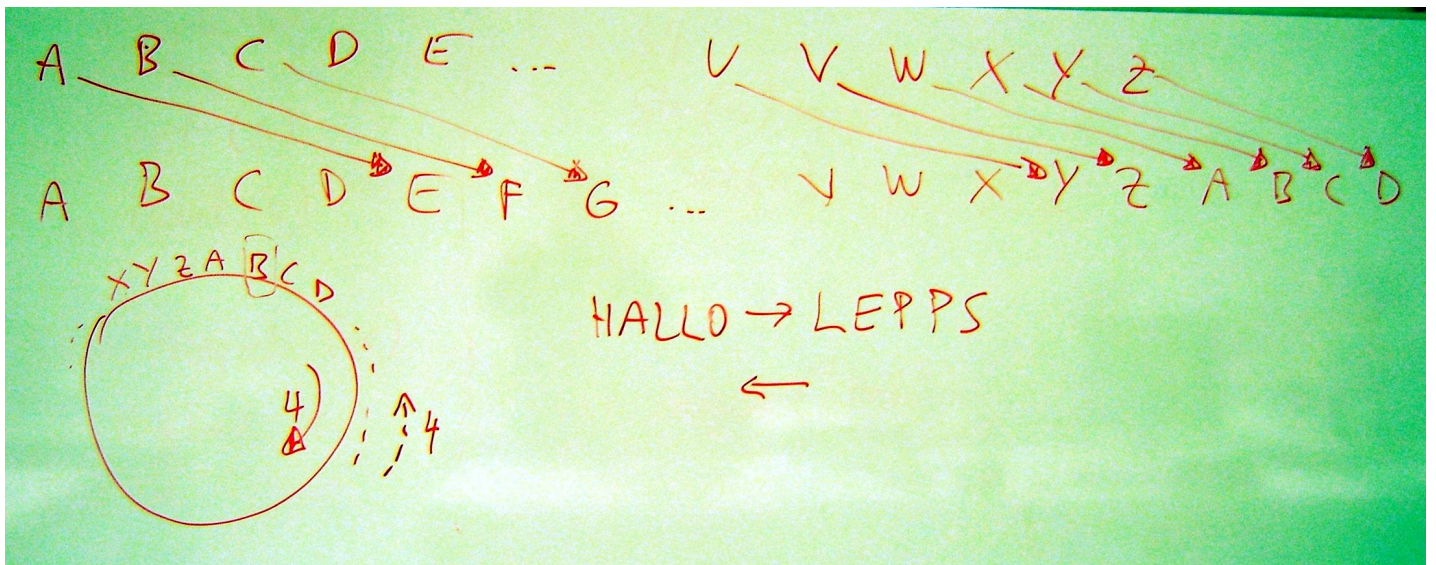 A B C D E ... U V W X Y Z
A B C D E F G ... V W X Y Z A B C D
X Y Z A B C D
HALLO → LEPPS
←
4
4